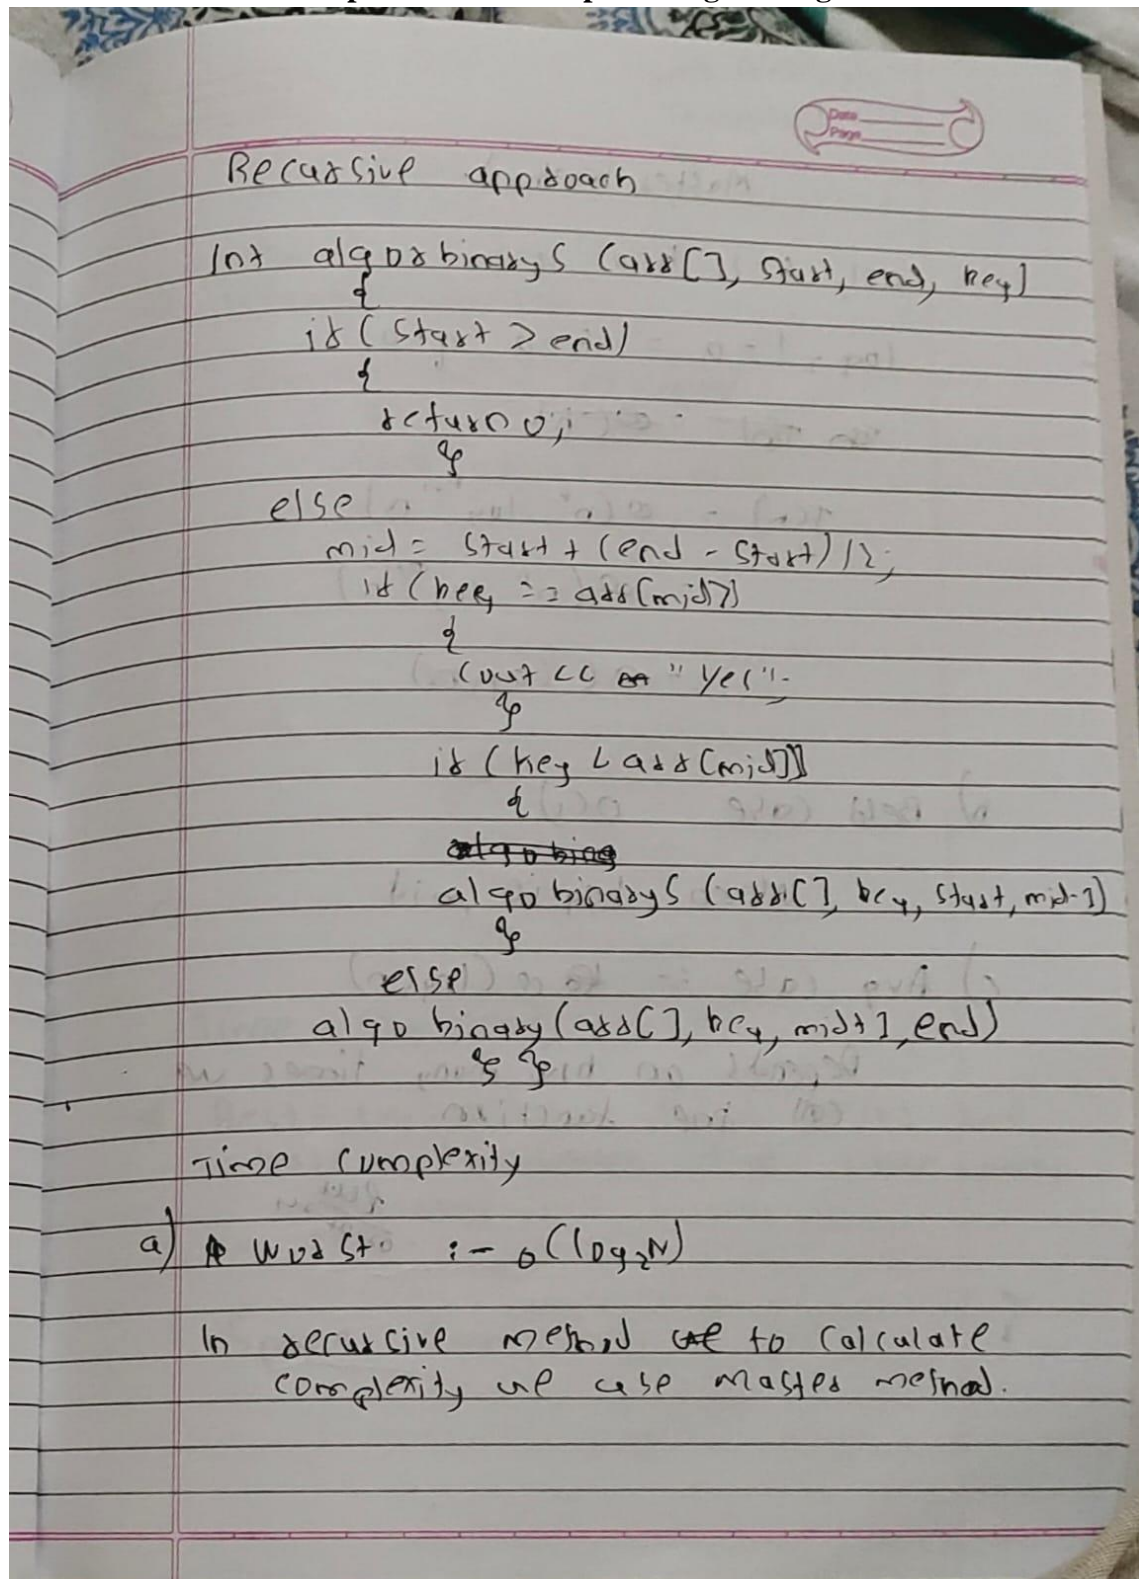 Date
Page
Recursive approach
Int algorbinaryS (arr[], start, end, key)
{
if (start > end)
{
return 0;
}
else
mid = start + (end - start) / 2;
if (key == arr[mid])
{
cout << "Yes";
}
if (key < arr[mid])
{
algo binaryS (arr[], key, start, mid-1)
}
else
algo binary(arr[], key, mid+1, end)
} }
Time complexity
a) Worst :- o(log2N)
In recursive method to calculate
complexity we use master method.